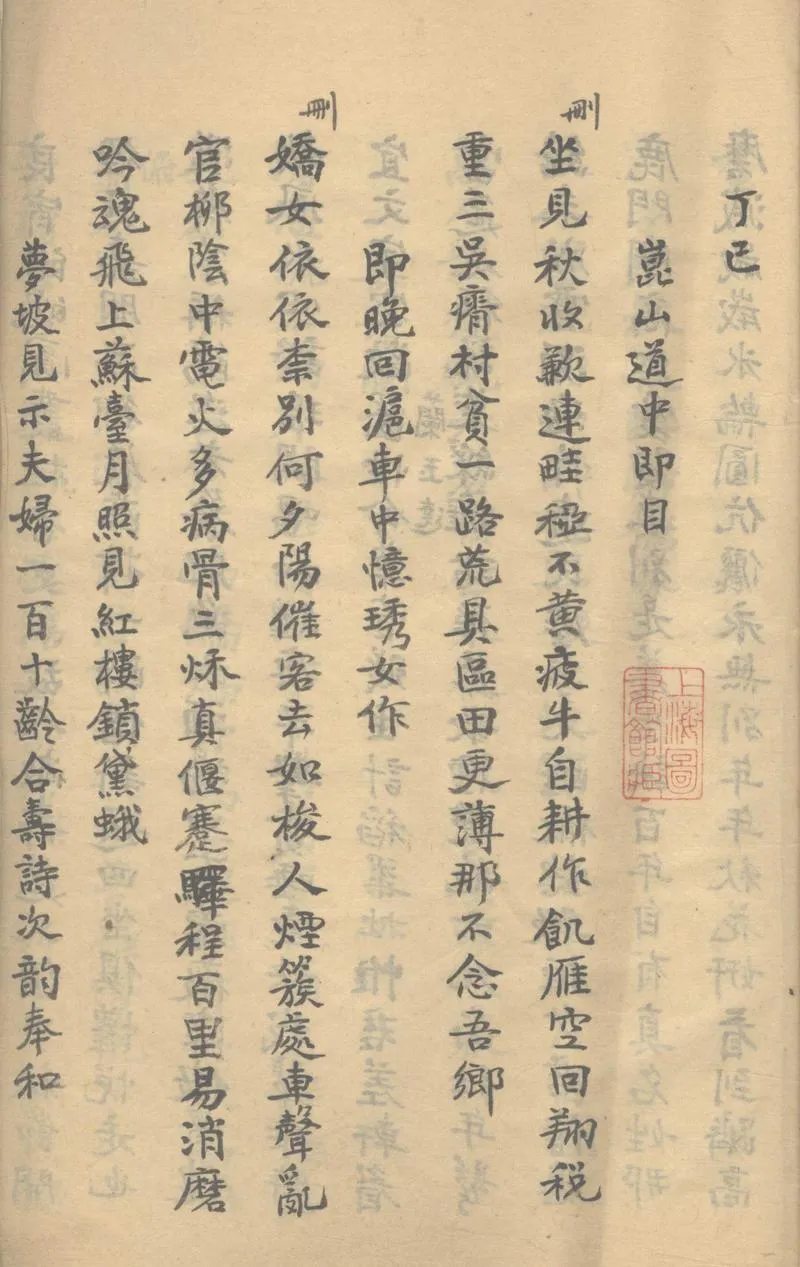 丁巳
崑山道中即目
刪
坐見秋收歉連畦稏不黄疲牛自耕作飢雁空回翔税
重三吳瘠村貧一路荒具區田更薄那不念吾鄉
即晚回滬車中憶琇女作
刪
嬌女依依柰別何夕陽催客去如梭人煙簇處車聲亂
官栁陰中電火多病骨三秌真偃蹇驛程百里易消磨
吟魂飛上蘇臺月照見紅樓鎖黛蛾
夢坡見示夫婦一百十齡合壽詩次韵奉和
上海圖
書館藏